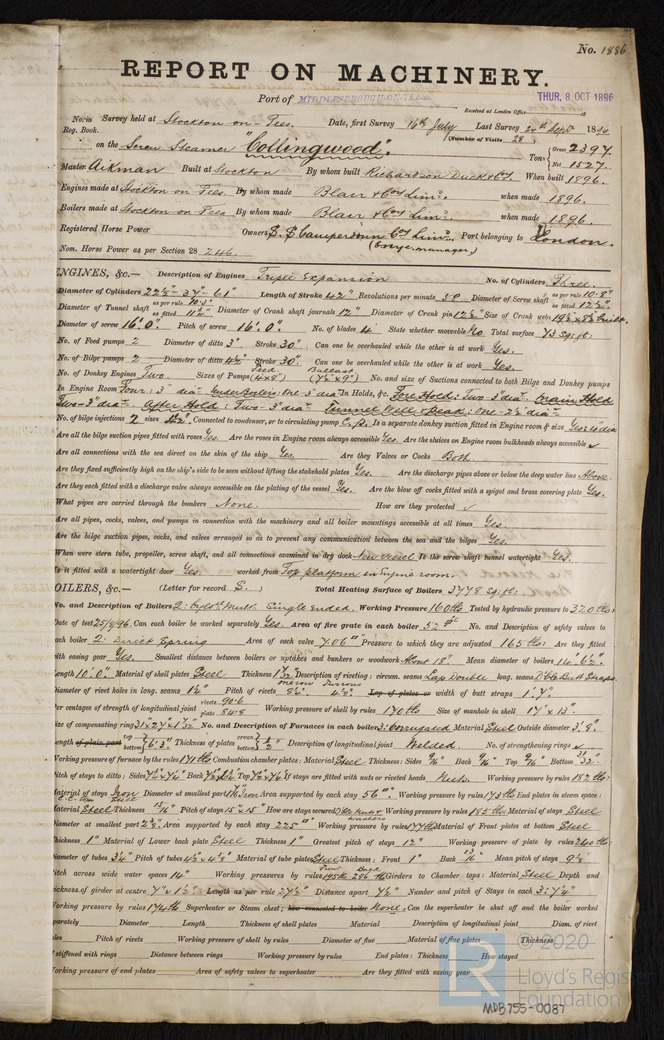 No. 1886
REPORT ON MACHINERY.
Port of MIDDLESBROUGH-ON-TEES
Received at London Office 18
THUR. 8 OCT 1896
No. in Survey held at Stockton on Tees. Date, first Survey 16th July Last Survey 24th Sept 1896
Reg. Book. (Number of Visits 28)
on the Screw Steamer "Collingwood". Tons Gross 2397 Net 1527.
Master Aikman Built at Stockton By whom built Richardson Duck & Co. When built 1896.
Engines made at Stockton on Tees. By whom made Blair & Coy Limd. when made 1896.
Boilers made at Stockton on Tees By whom made Blair & Coy Limd. when made 1896.
Registered Horse Power Owners S.S. Camperdown Coy Limd. Port belonging to London.
Nom. Horse Power as per Section 28 246.
ENGINES, &c.— Description of Engines Triple Expansion No. of Cylinders Three.
Diameter of Cylinders 22½-37-61" Length of Stroke 42" Revolutions per minute Diameter of Screw shaft as per rule 10.8" as fitted 12½"
Diameter of Tunnel shaft as per rule 10.3" as fitted 11½" Diameter of Crank shaft journals 12" Diameter of Crank pin 12½" Size of Crank webs built.
Diameter of screw 16'.0" Pitch of screw 16'.0". No. of blades 4 State whether moveable No Total surface 73 sq. ft.
No. of Feed pumps 2 Diameter of ditto 3" Stroke 30" Can one be overhauled while the other is at work Yes.
No. of Bilge pumps 2 Diameter of ditto 4½" Stroke 30". Can one be overhauled while the other is at work Yes.
No. of Donkey Engines Two. Sizes of Pumps Feed (4"x8") Ballast (7½"x9") No. and size of Suctions connected to both Bilge and Donkey pumps
In Engine Room Four: 3" diar. Under Boilers: One-3" dia. In Holds, &c. Fore Hold: Two-3" diar. Main Hold
Two-3" diar. After Hold: Two-3" diar Tunnel Well & Peak: One-2½" diar
No. of bilge injections 2 sizes Connected to condenser, or to circulating pump C.p. Is a separate donkey suction fitted in Engine room & size Yes
Are all the bilge suction pipes fitted with roses Yes. Are the roses in Engine room always accessible Yes. Are the sluices on Engine room bulkheads always accessible ✓
Are all connections with the sea direct on the skin of the ship Yes. Are they Valves or Cocks Both
Are they fixed sufficiently high on the ship's side to be seen without lifting the stokehold plates Yes. Are the discharge pipes above or below the deep water line Above.
Are they each fitted with a discharge valve always accessible on the plating of the vessel Yes. Are the blow off cocks fitted with a spigot and brass covering plate Yes.
What pipes are carried through the bunkers None. How are they protected ✓
Are all pipes, cocks, valves, and pumps in connection with the machinery and all boiler mountings accessible at all times Yes.
Are the bilge suction pipes, cocks, and valves arranged so as to prevent any communication between the sea and the bilges Yes.
When were stern tube, propeller, screw shaft, and all connections examined in dry dock New vessel Is the screw shaft tunnel watertight Yes.
Is it fitted with a watertight door Yes. worked from Top platform in Engine room.
BOILERS, &c.— (Letter for record S.) Total Heating Surface of Boilers 3778 sq. ft.
No. and Description of Boilers 2: Cyl. Mult. Single ended. Working Pressure 160 lbs Tested by hydraulic pressure to 320 lbs.
Date of test 25/8/96. Can each boiler be worked separately Yes. Area of fire grate in each boiler No. and Description of safety valves to
each boiler 2: direct Spring Area of each valve 7.06" Pressure to which they are adjusted 165 lbs. Are they fitted
with easing gear Yes. Smallest distance between boilers or uptakes and bunkers or woodwork About 18". Mean diameter of boilers 14'.6½".
Length 10'.0". Material of shell plates Steel Thickness 1 1/32" Description of riveting: circum. seams Lap Double long. seams Dble Butt Straps
Diameter of rivet holes in long. seams Pitch of rivets Lap of plates or width of butt straps 1'.7".
Per centages of strength of longitudinal joint rivets 90.6 plate 84.8 Working pressure of shell by rules 170 lbs Size of manhole in shell 17" x 13"
Size of compensating ring No. and Description of Furnaces in each boiler 3: Corrugated Material Steel Outside diameter 3'.8".
Length of plain part top bottom 6'.3" Thickness of plates crown bottom ½" Description of longitudinal joint Welded. No. of strengthening rings ✓
Working pressure of furnace by the rules 171 lbs Combustion chamber plates: Material Steel Thickness: Sides 9/16" Back 9/16" Top 9/16" Bottom
Pitch of stays to ditto: Sides Back Top If stays are fitted with nuts or riveted heads Nuts. Working pressure by rules 182 lbs.
Material of stays Iron Diameter at smallest part Area supported by each stay 56". Working pressure by rules 173 lbs End plates in steam space:
Material Steel Thickness 15/16" Pitch of stays 15"x15" How are stays secured Dble nuts & washers Working pressure by rules 185 lbs Material of stays Steel
Diameter at smallest part Area supported by each stay 225" Working pressure by rules 177 lbs Material of Front plates at bottom Steel
Thickness 1" Material of Lower back plate Steel Thickness 1" Greatest pitch of stays 12" Working pressure of plate by rules 240 lbs.
Diameter of tubes 3¼" Pitch of tubes 4½" x 4⅜" Material of tube plates Steel Thickness: Front 1" Back 13/16" Mean pitch of stays
Pitch across wide water spaces 14" Working pressures by rules Front Back Girders to Chamber tops: Material Steel Depth and
thickness of girder at centre 7" x 1½" Length as per rule 27½" Distance apart 7½" Number and pitch of Stays in each 3: 7¼"
Working pressure by rules 174 lbs Superheater or Steam chest; how connected to boiler None. Can the superheater be shut off and the boiler worked
separately Diameter Length Thickness of shell plates Material Description of longitudinal joint Diam. of rivet
holes Pitch of rivets Working pressure of shell by rules Diameter of flue Material of flue plates Thickness
If stiffened with rings Distance between rings Working pressure by rules End plates: Thickness How stayed
Working pressure of end plates Area of safety valves to superheater Are they fitted with easing gear
© 2020
LR
Lloyd's Register
Foundation
MDB755-0087